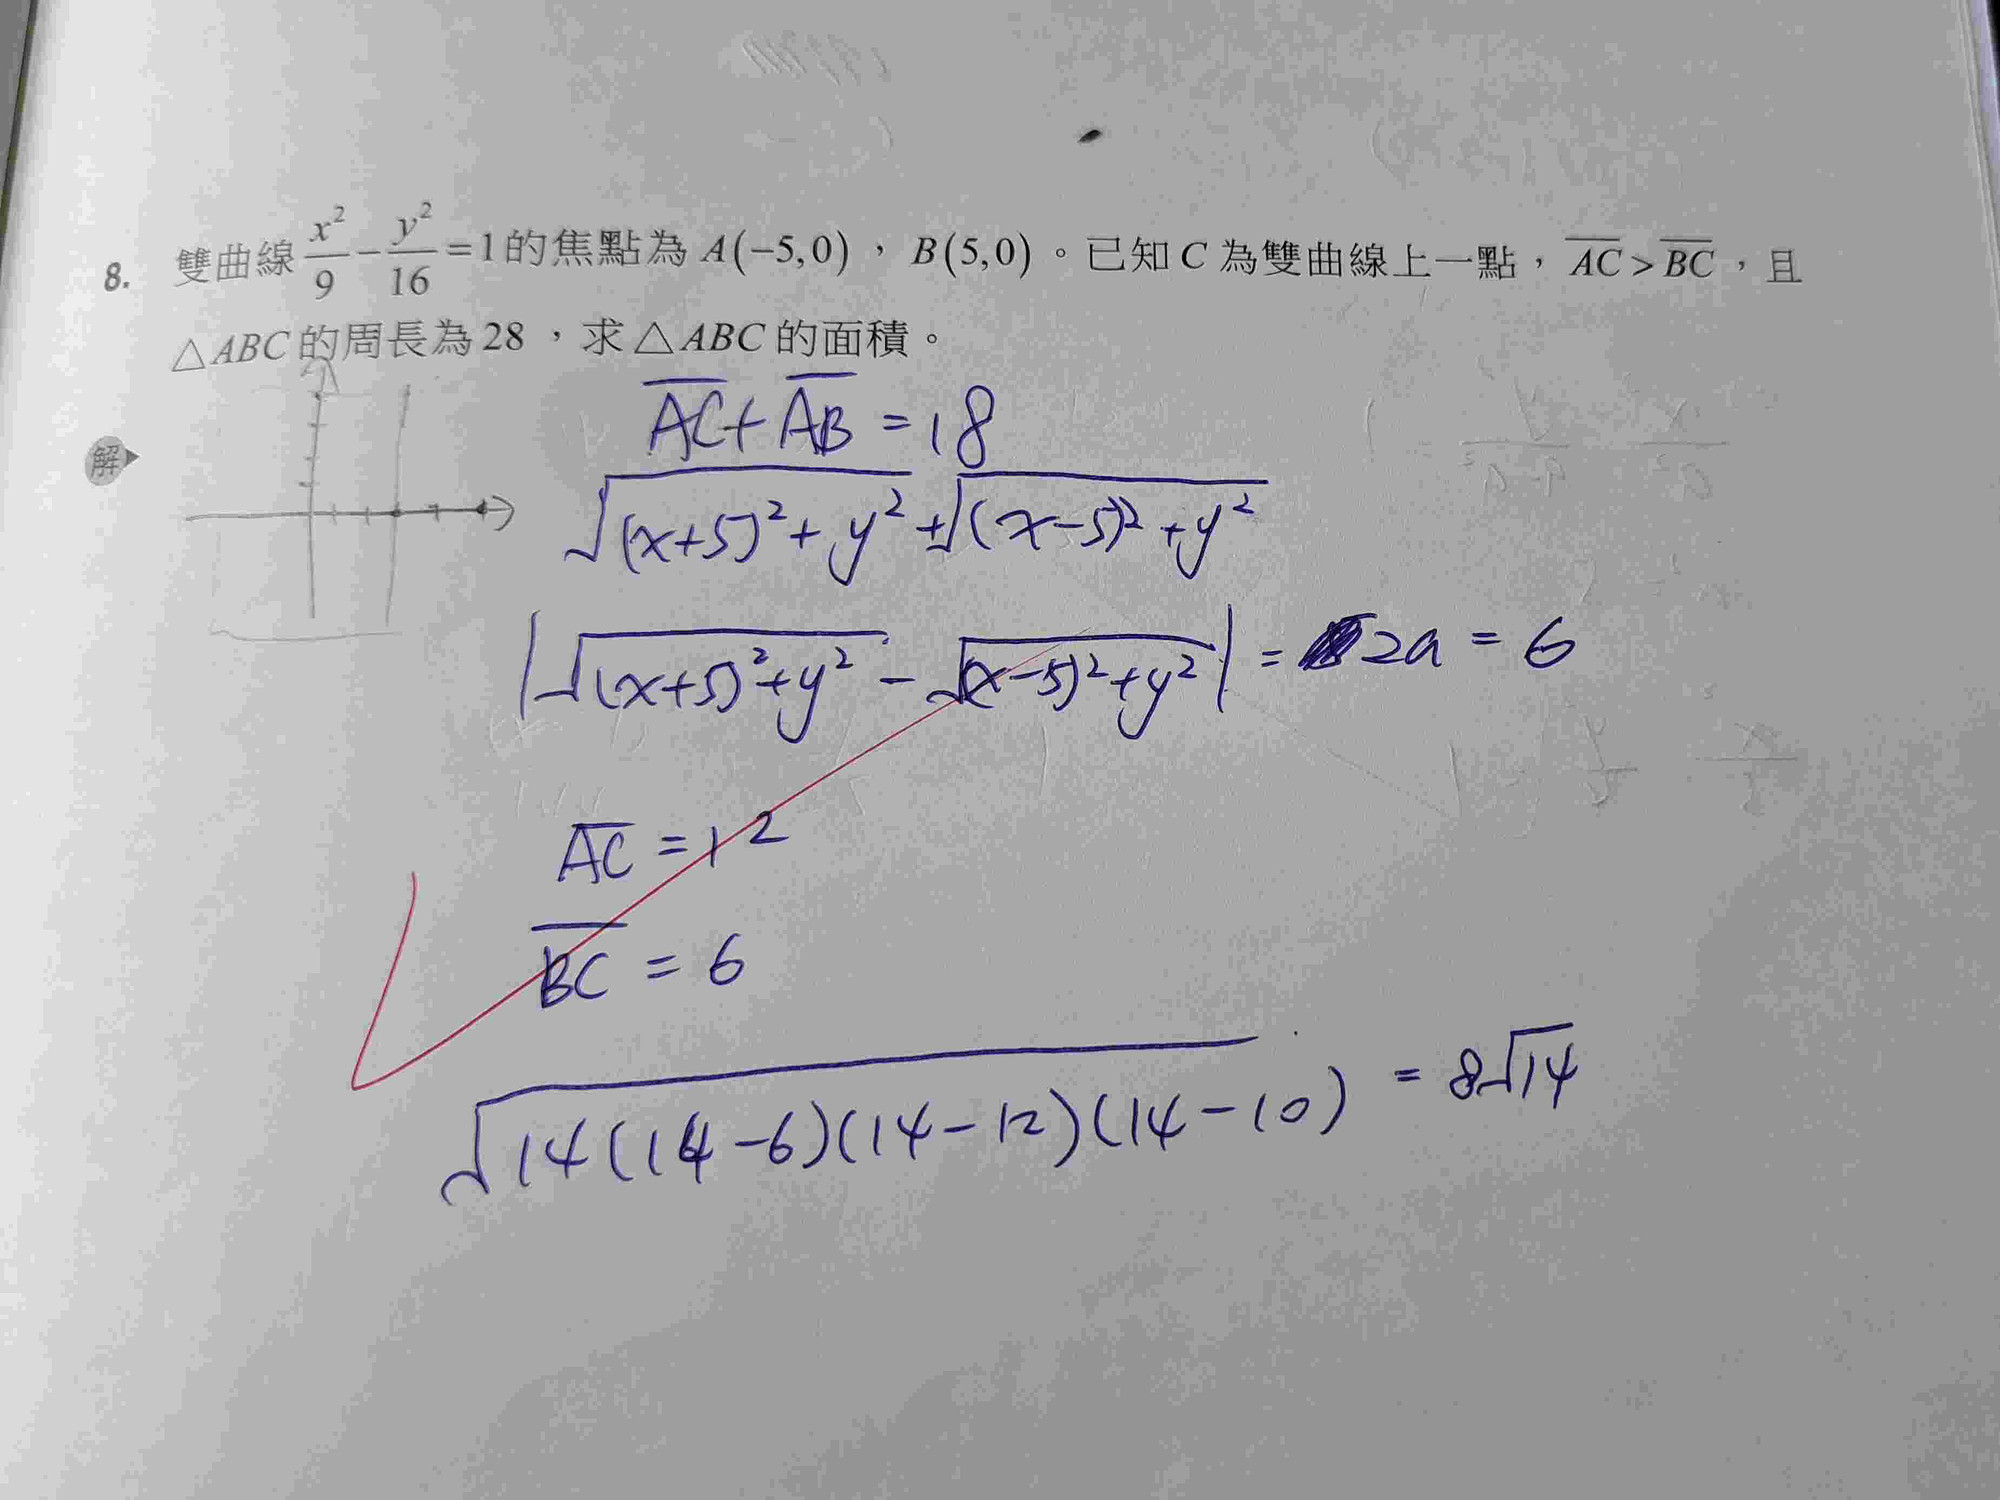 8. 雙曲線 x²/9 − y²/16 = 1 的焦點為 A(−5,0)，B(5,0)。已知 C 為雙曲線上一點，A̅C̅ > B̅C̅，且
△ABC 的周長為 28，求 △ABC 的面積。
解
A̅C̅ + A̅B̅ = 18
√((x+5)² + y²) + √((x−5)² + y²)
|√((x+5)² + y²) − √((x−5)² + y²)| = 2a = 6
A̅C̅ = 12
B̅C̅ = 6
√(14(14−6)(14−12)(14−10)) = 8√14